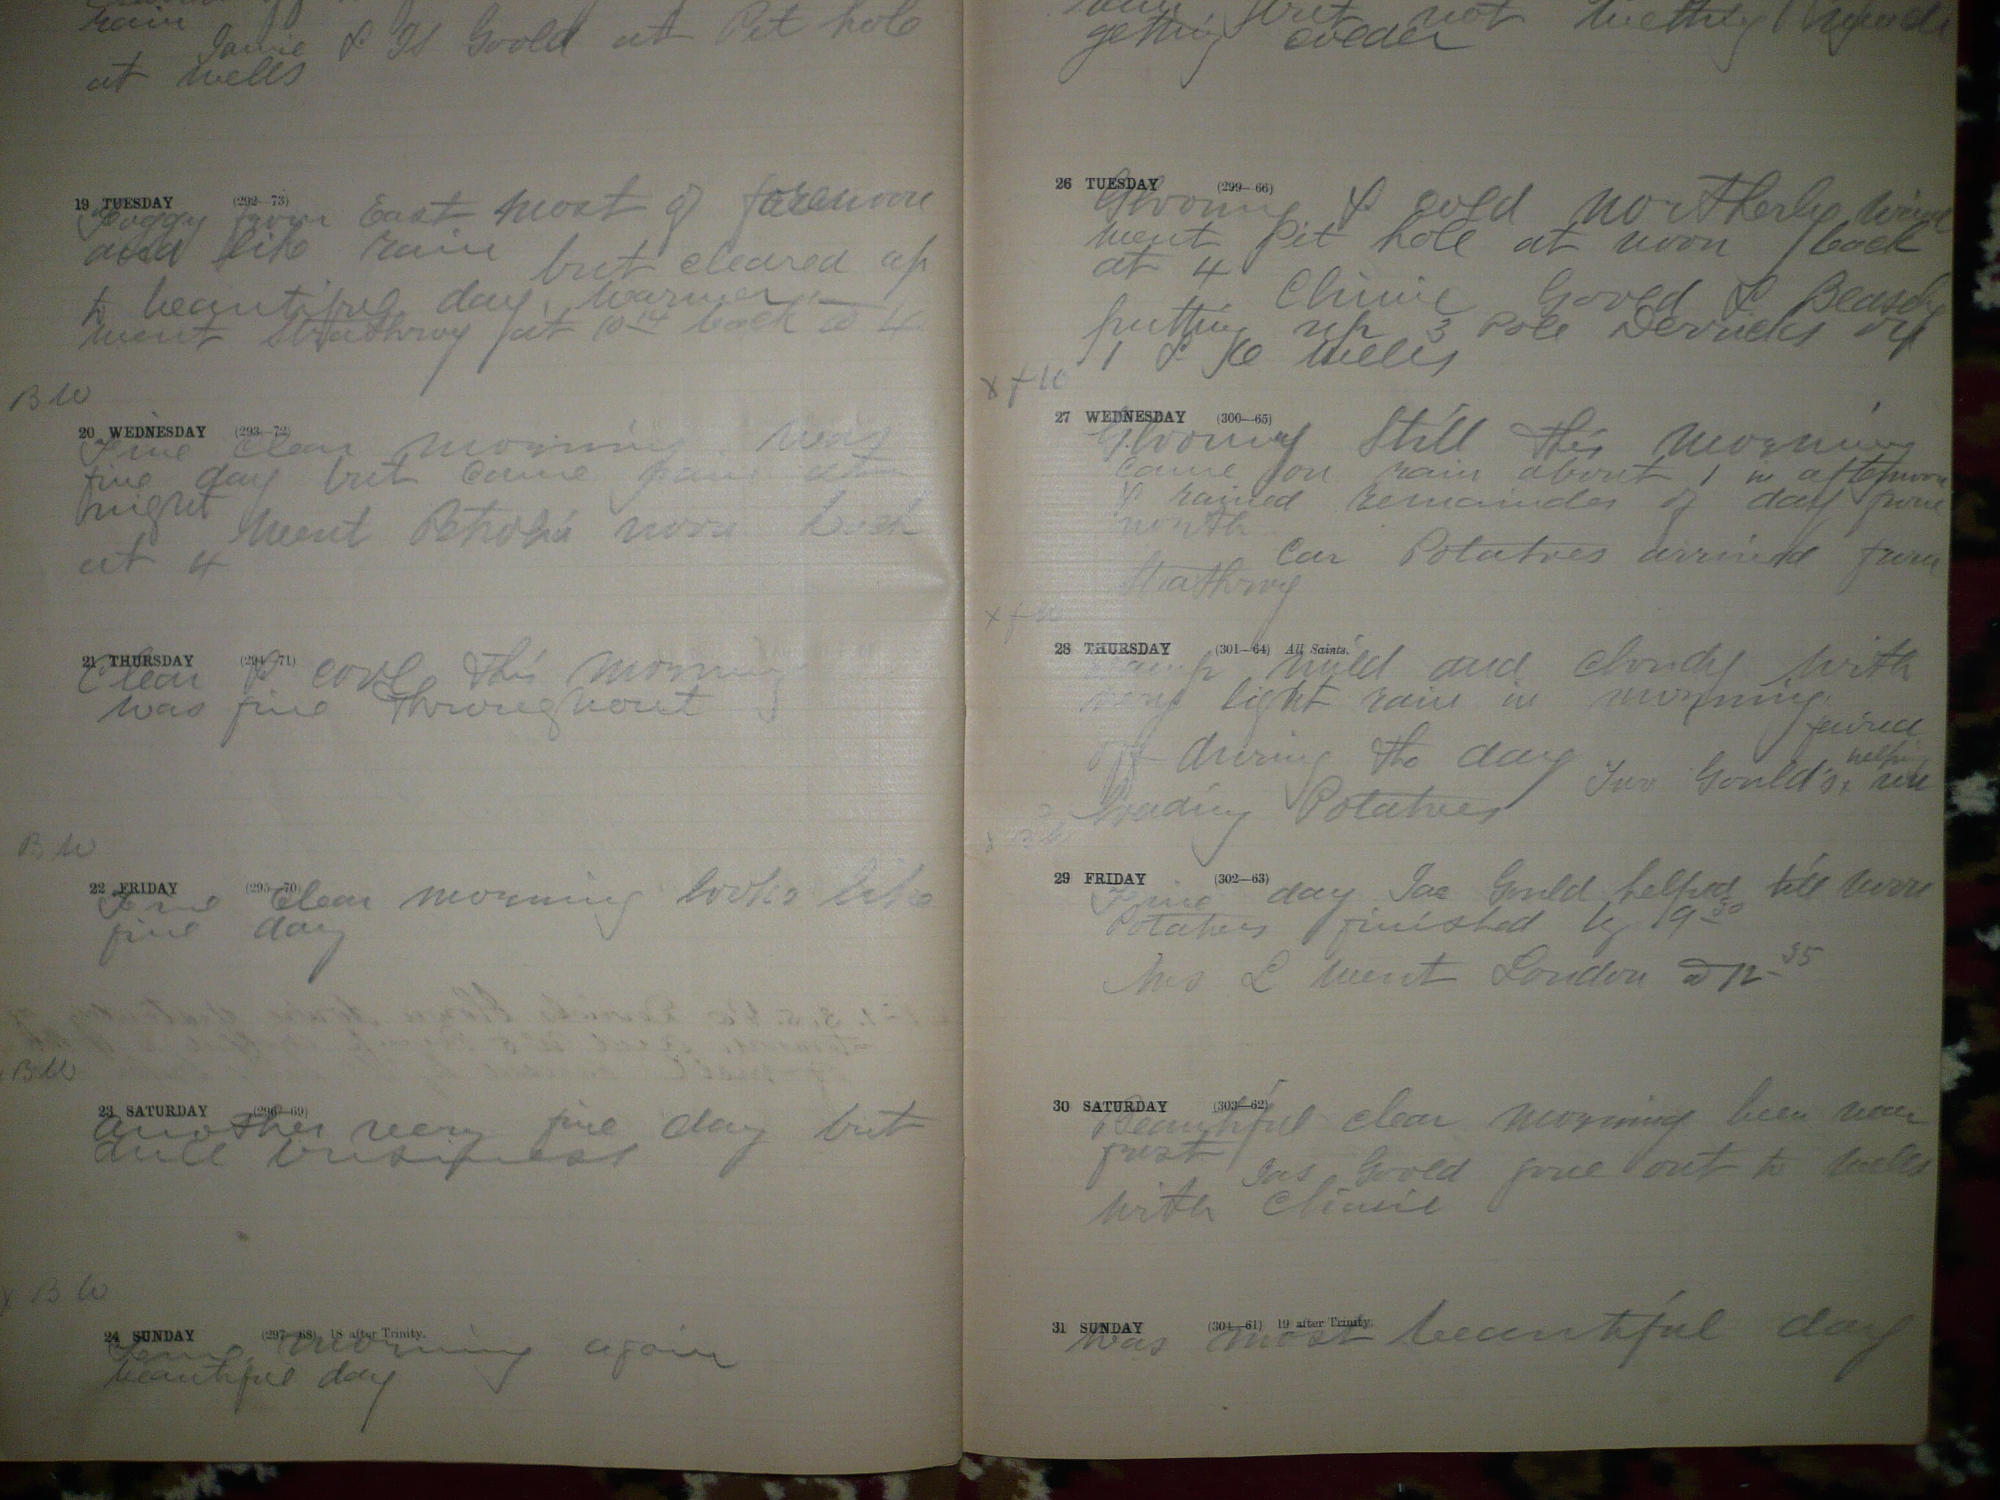 rain
Jamie & Js Goold at Pit hole
at wells
19 TUESDAY (292—73)
Foggy from East most of forenoon
and like rain but cleared up
to beautiful day, warmer
went Strathroy at 10 14 back @ 4
B W
20 WEDNESDAY (293—72)
Fine clear morning was
fine day but came rain at
night
Went Petrolia noon back
at 4
21 THURSDAY (294—71)
Clear & cool this morning
was fine throughout
B W
22 FRIDAY (295—70)
Fine clear morning looks like
fine day
B W
23 SATURDAY (296—69)
another very fine day but
dull business
x B W
24 SUNDAY (297—68) 18 after Trinity.
morning again
beautiful day
but not
getting colder
26 TUESDAY (299—66)
Gloomy & cold northerly wind
went Pit hole at noon back
at 4
Climie Goold &
putting up 3 pole Derricks
1 & wells
27 WEDNESDAY (300—65)
Gloomy still this morning
came on rain about 1 in afternoon
& rained remainder of day from
north
Car Potatoes arrived from
Strathroy
28 THURSDAY (301—64) All Saints.
Damp mild and cloudy with
very light rain in morning
faired
off during the day Two Gould's helping
loading Potatoes
29 FRIDAY (302—63)
Fine day Jas Gould helped till noon
Potatoes finished by 9 30
Mrs L went London @ 12 35
30 SATURDAY (303—62)
Beautiful clear morning been near
frost
Jas Goold gone out to wells
with Climie
31 SUNDAY (304—61) 19 after Trinity.
was most beautiful day